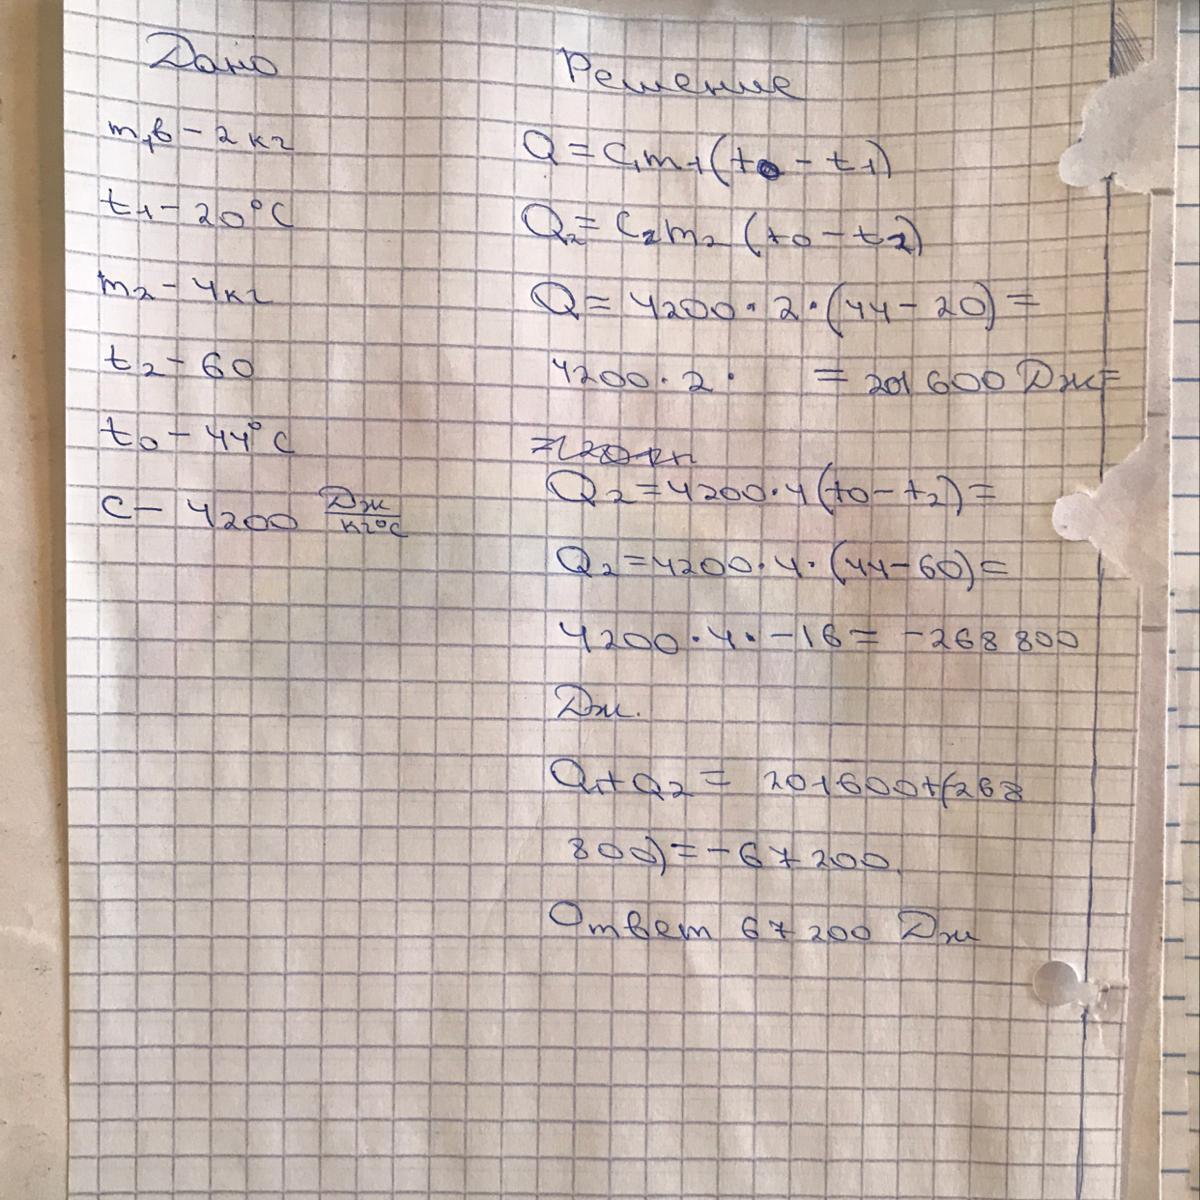 Дано
m₁в - 2 кг
t₁ - 20°C
m₂ - 4кг
t₂ - 60
t₀ - 44°C
c - 4200 Дж/кг°C
Решение
Q = C₁m₁(t₀ - t₁)
Q₂ = C₂m₂(t₀ - t₂)
Q = 4200 · 2 · (44 - 20) =
4200 · 2 · = 201 600 Дж =
Q₂ = 4200 · 4(t₀ - t₂) =
Q₂ = 4200 · 4 · (44 - 60) =
4200 · 4 · -16 = -268 800
Дж.
Q₁+Q₂ = 201600+(-268
800) = -67 200.
Ответ 67 200 Дж